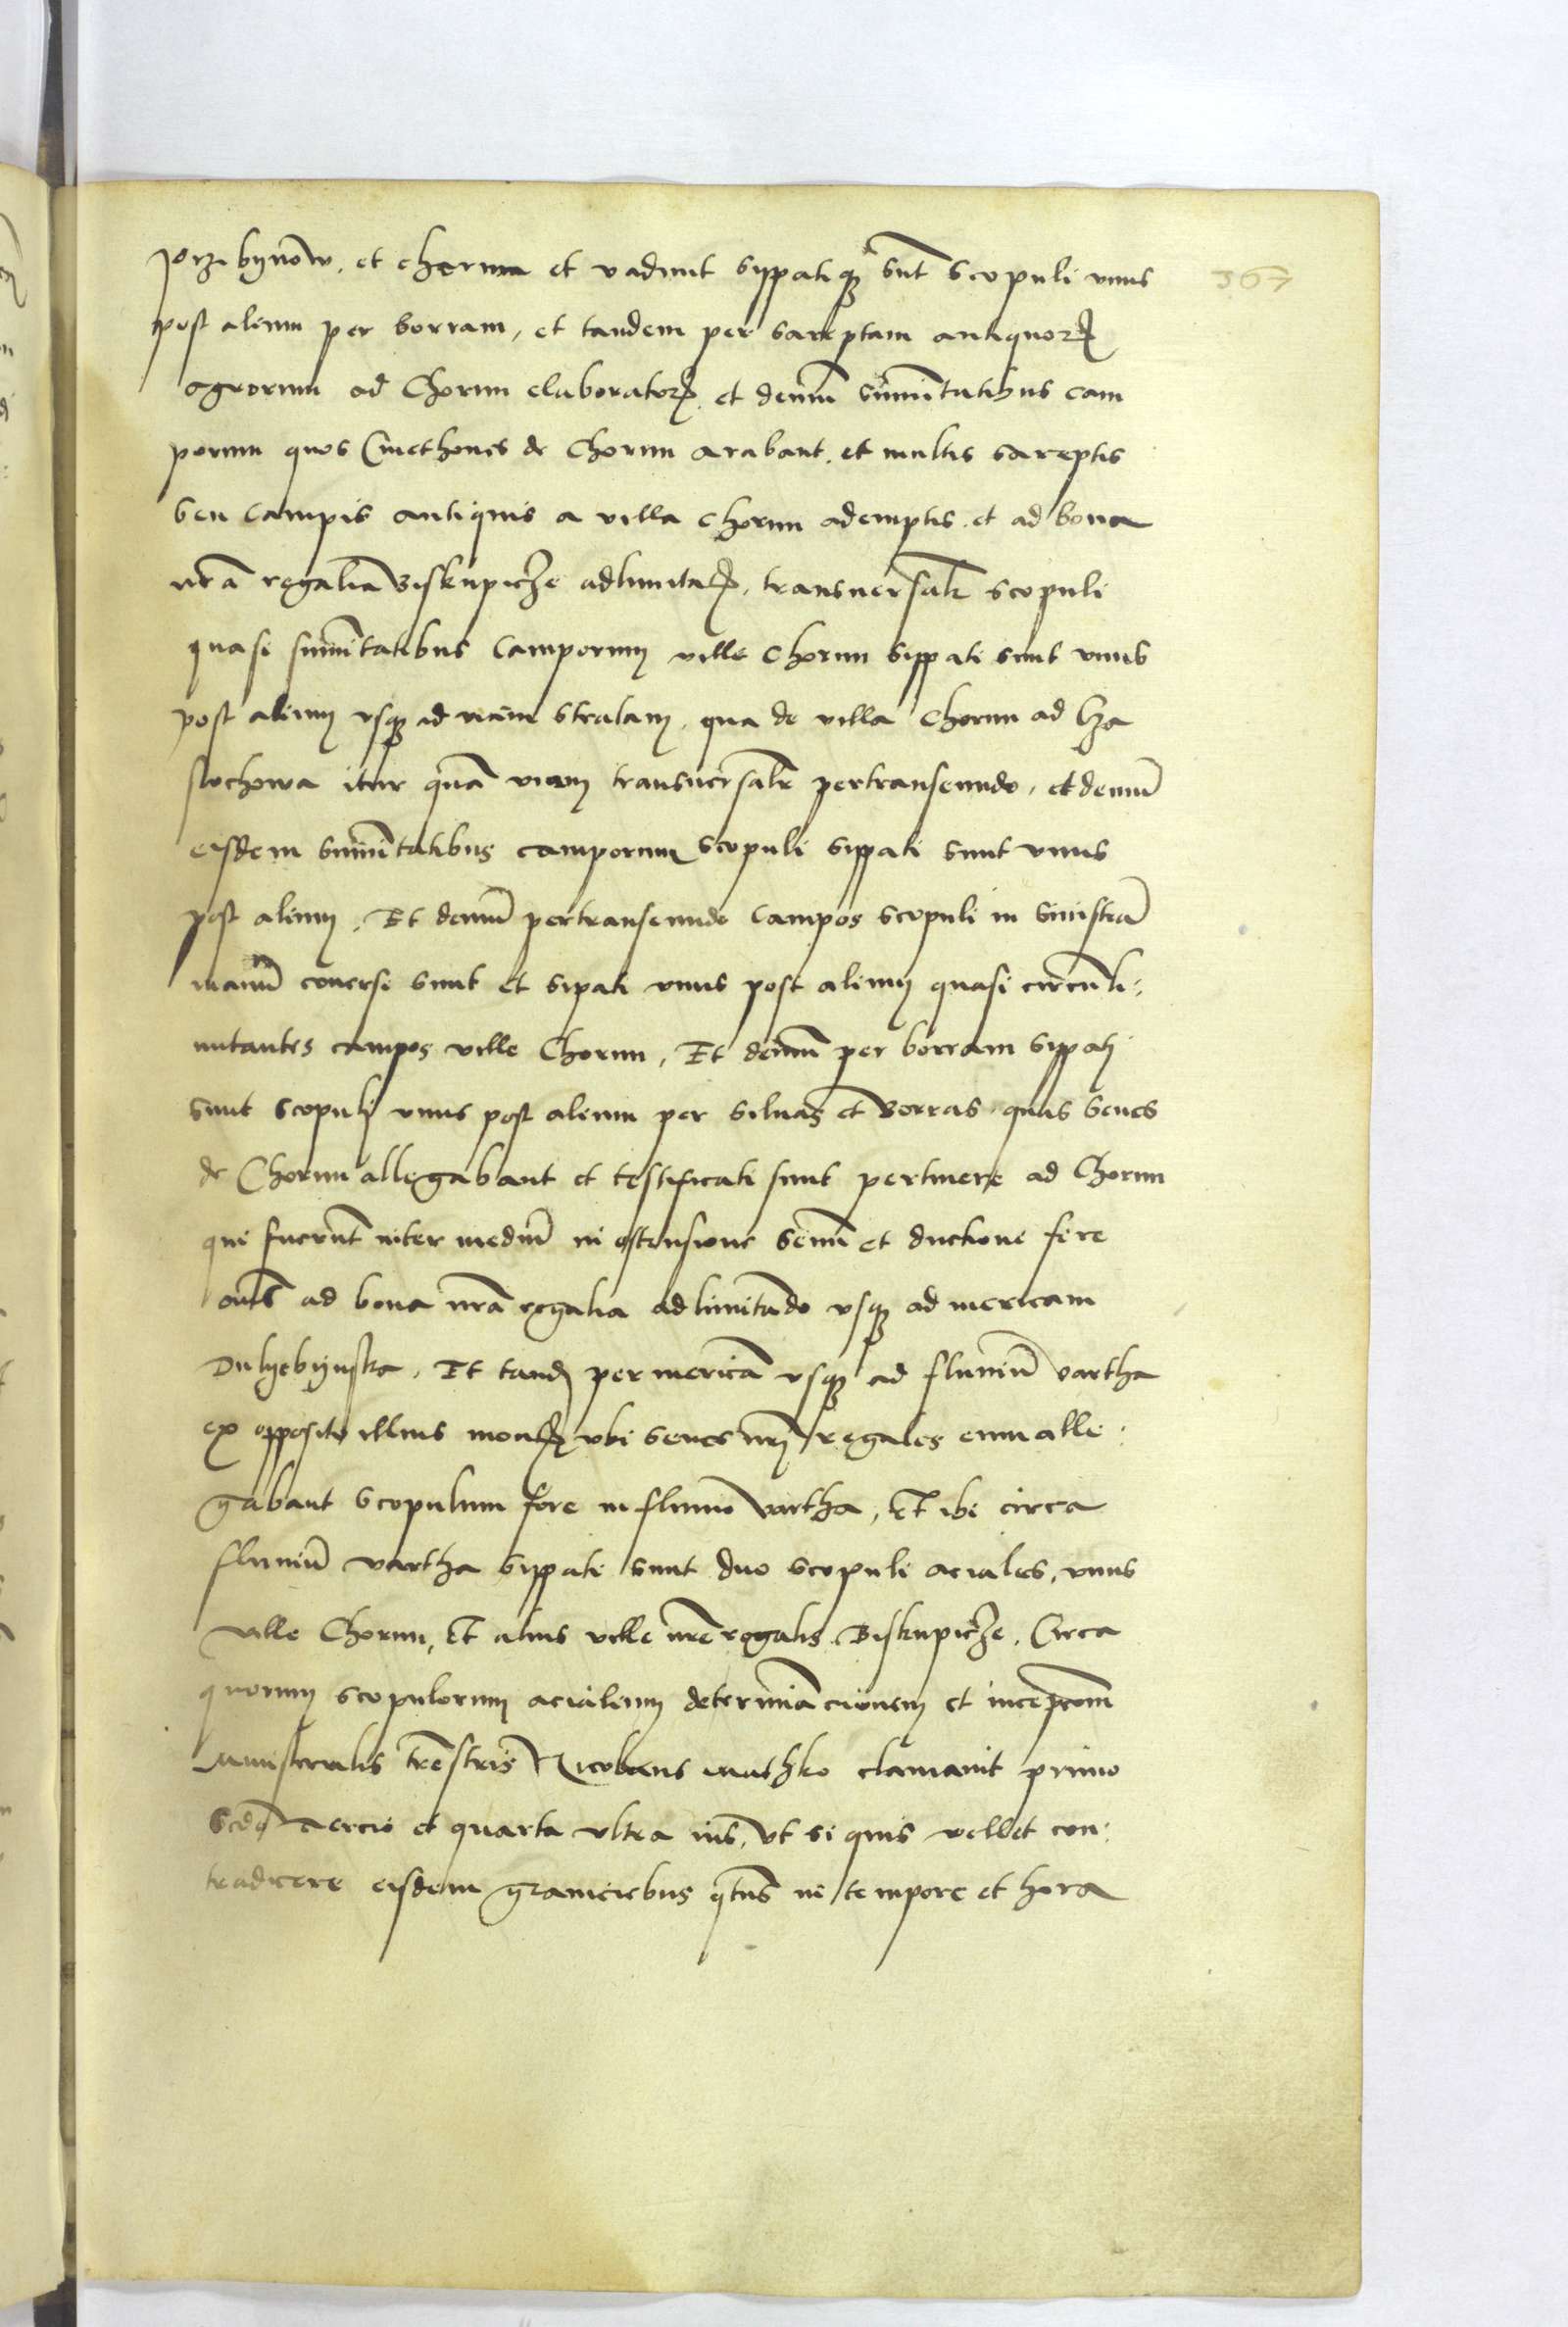 przibÿnow, et chorun et vadunt sÿppatiqꝫ sūt scopuli vnus
367
post alium per borram, et tandem per sareptam antiquoꝝ
agrorum ad Chorun elaboratoꝝ. et demū sūmitatibus cam
porum quos Cmethones de Chorun arabant. et multis sareptis
seu campis antiquis a villa Chorun ademptis. et ad bona
nrā regalia Biskupicze adlimitaꝝ, transuersalr scopuli
quasi sūmitatibus camporum ville Chorun sippati sunt vnus
post alium vsqꝫ ad viam stratam. qua de villa Chorun ad Cza
stochowa itur quā viam transuersalr pertranseundo, et demū
eisdem sūmitatibus camporum scopuli sippati sunt vnus
post alium, Et demū pertranseundo campos scopuli in sinistrā
manū conuersi sunt et sipati vnus post alium quasi circūli:
mitantes campos ville Chorun, Et demū per borram sippati
sunt scopuli vnus post alium per siluas et Borras quas senes
de Chorun allegabant et testificati sunt pertinere ad Chorun
qui fuerūt inter mediū in ostensione senū et ductione fere
oms ad bona nrā regalia adlimitādo vsqꝫ ad mericam
Dulyebÿnska, Et tandꝫ per mericā vsqꝫ ad fluuiū vartha
ex opposito illius vbi senes nrj regales enim alle:
gabant scopulum fore in fluuio vartha, Et ibi circa
fluuiū vartha sippati sunt duo scopuli aciales, vnus
ville Chorun, Et alius ville nrē regalis Biskupicze, Circa
quorum scopulorum acialium determinācionem et incepcōm
ministerialis trēstris Nicolaus mathko clamauit primo
scdo tercio et quarta vltra ius, vt si quis vellet con:
tradicere eisdem graniciebus qtus in tempore et hora